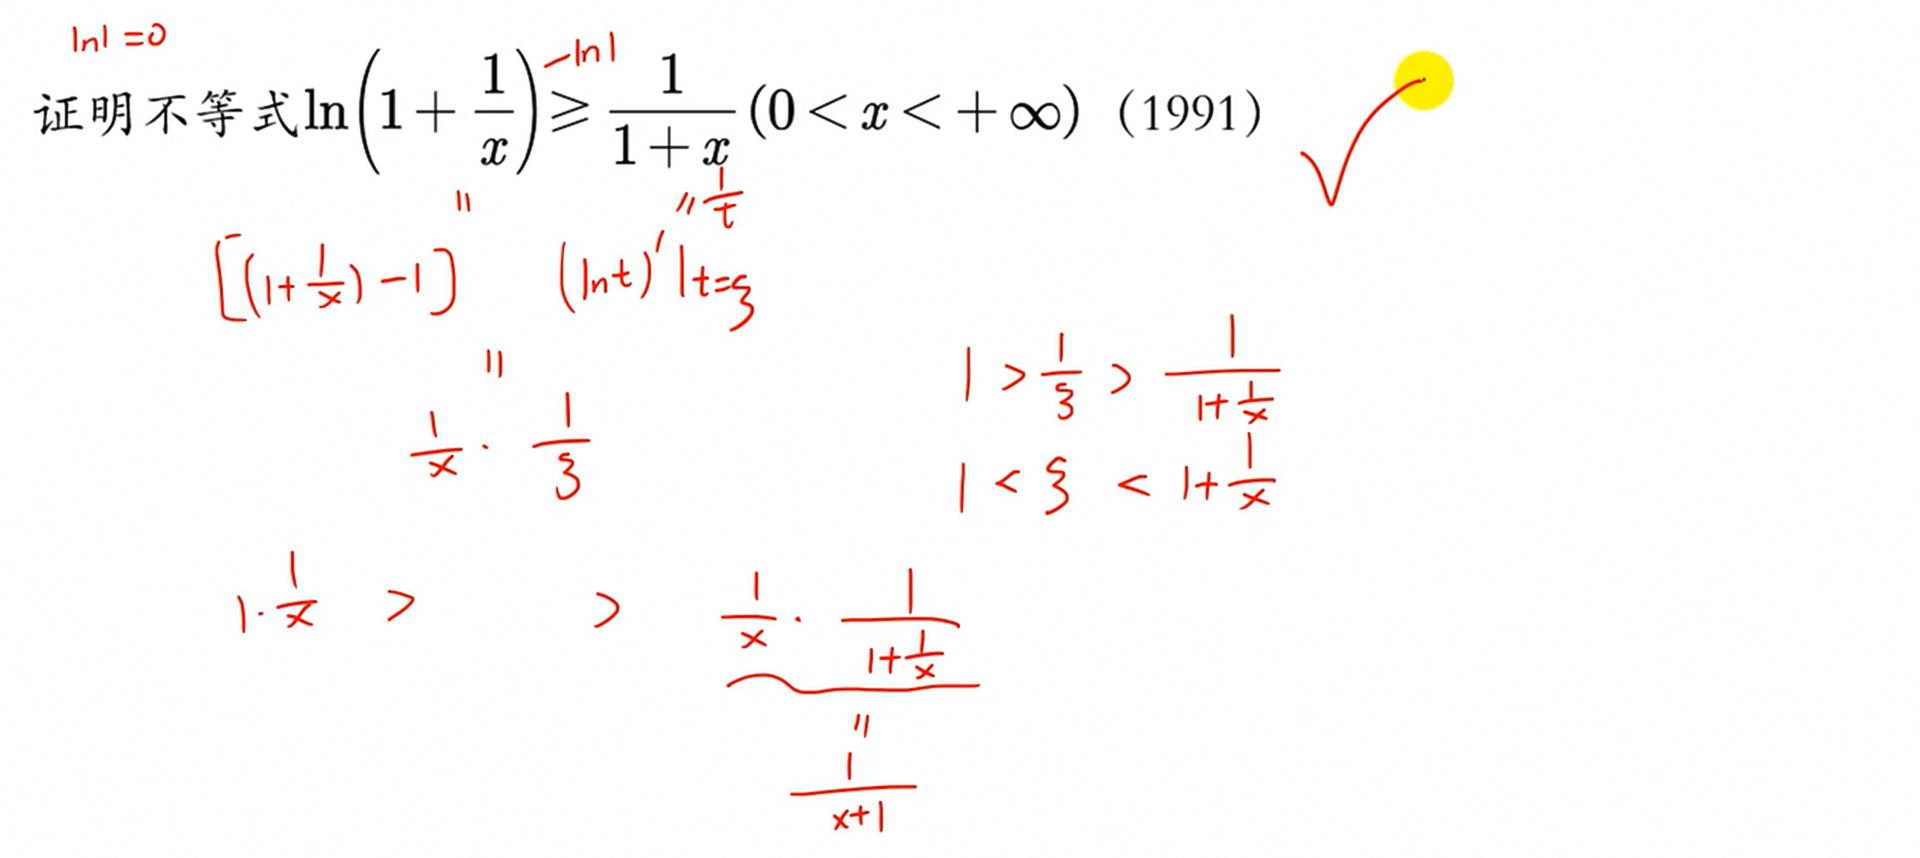 ln1=0
-ln1
证明不等式ln(1+1/x)≥1/(1+x)(0<x<+∞)(1991)
" " 1/t
[(1+1/x)-1] (lnt)'|t=ξ
"
1/x·1/ξ
1>1/ξ>1/(1+1/x)
1<ξ<1+1/x
1·1/x > > 1/x·1/(1+1/x)
"
1/(x+1)